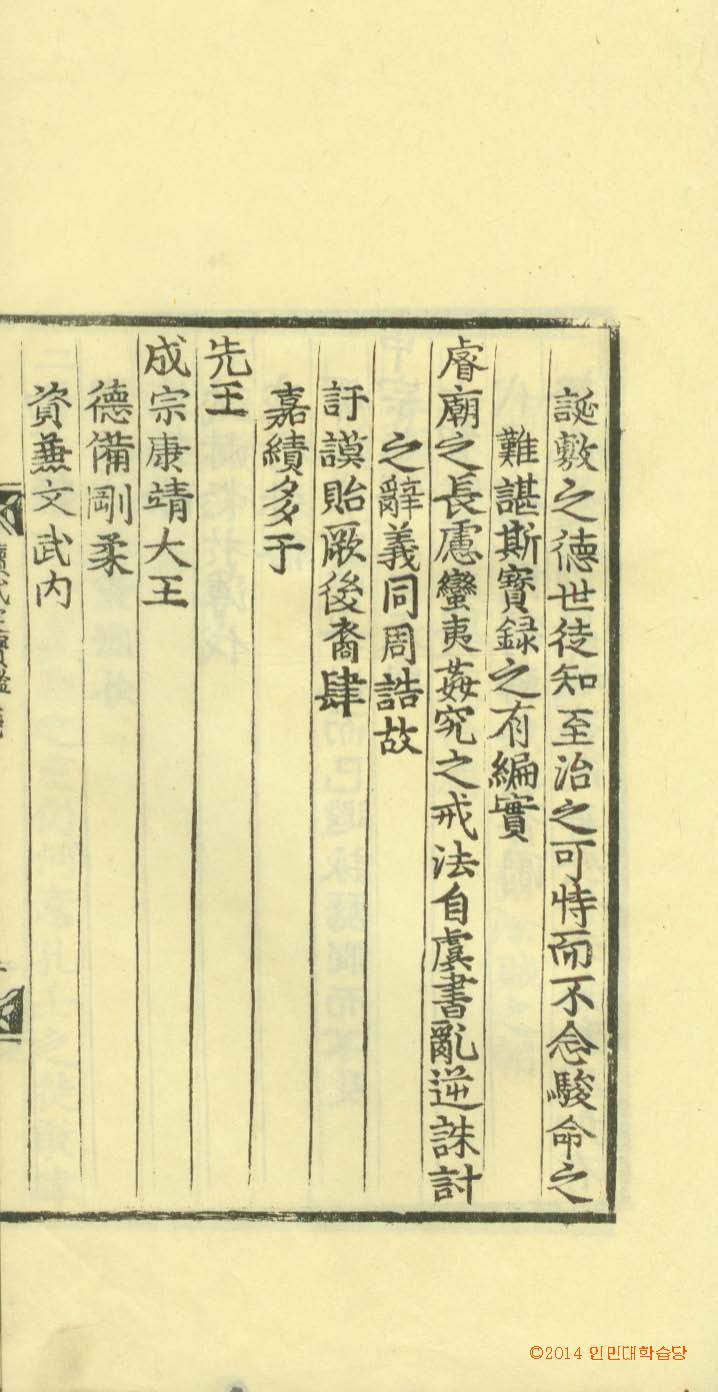 誕敷之德世徒知至治之可恃而不念駿命之
難諶斯寶錄之有編實
睿廟之長慮蠻夷姦宄之戒法自虞書亂逆誅討
之辭義同周誥故
訏謨貽厥後裔肆
嘉績多于
先王
成宗康靖大王
德備剛柔
資兼文武內
©2014 인민대학습당